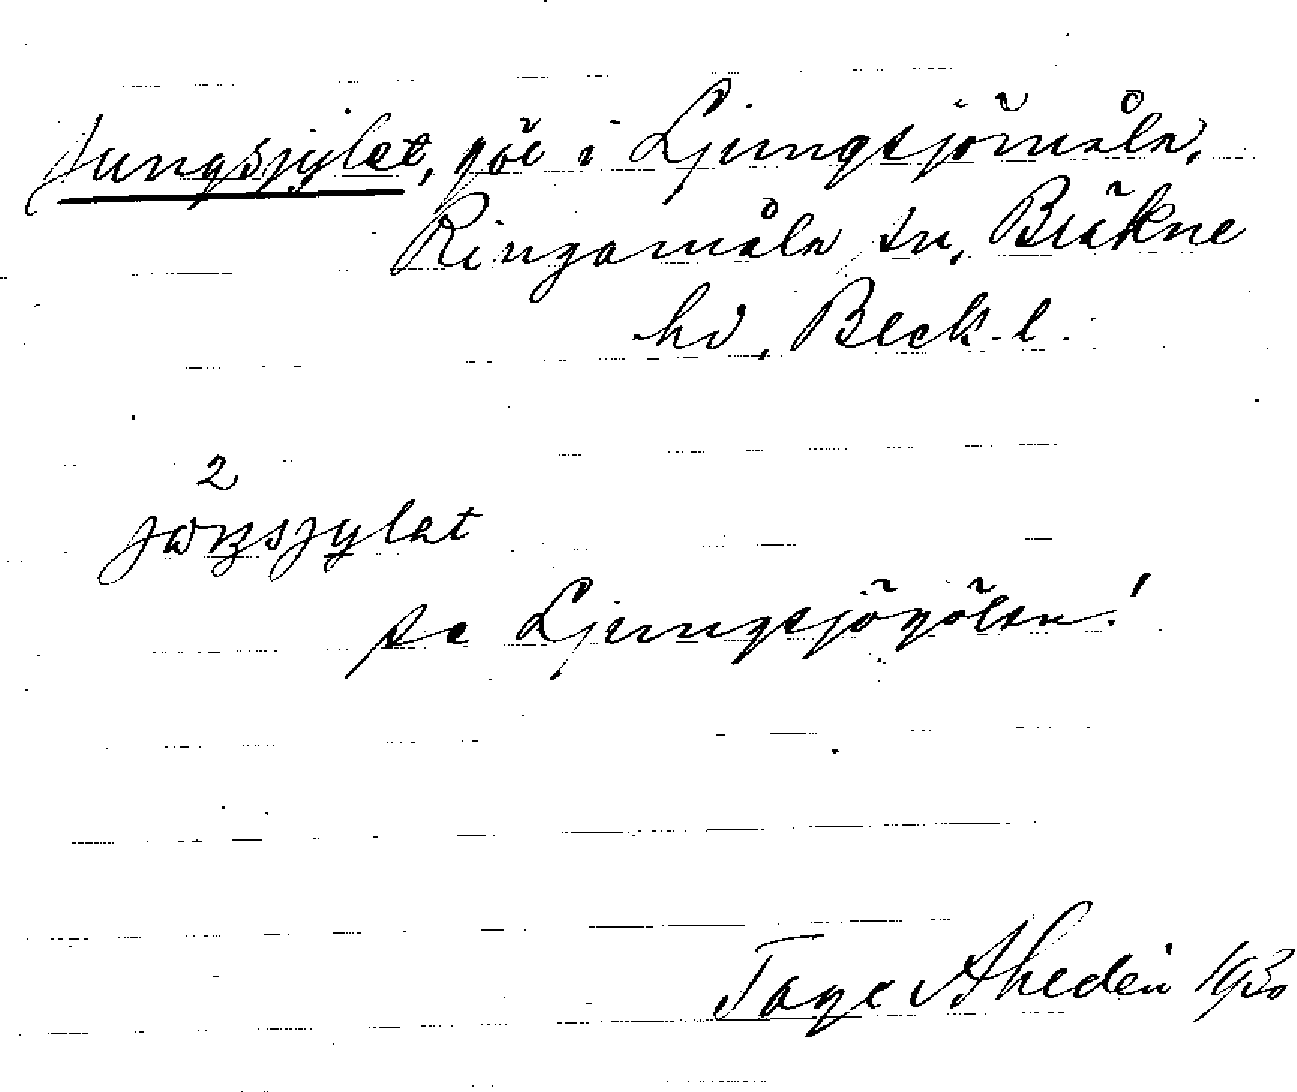 Jungsjylet, göl i Ljungsjömåla,
Ringamåla sn, Bräkne
hd, Bleck. l.
2
se Ljungsjögölen!
Tage Ahedén 1930